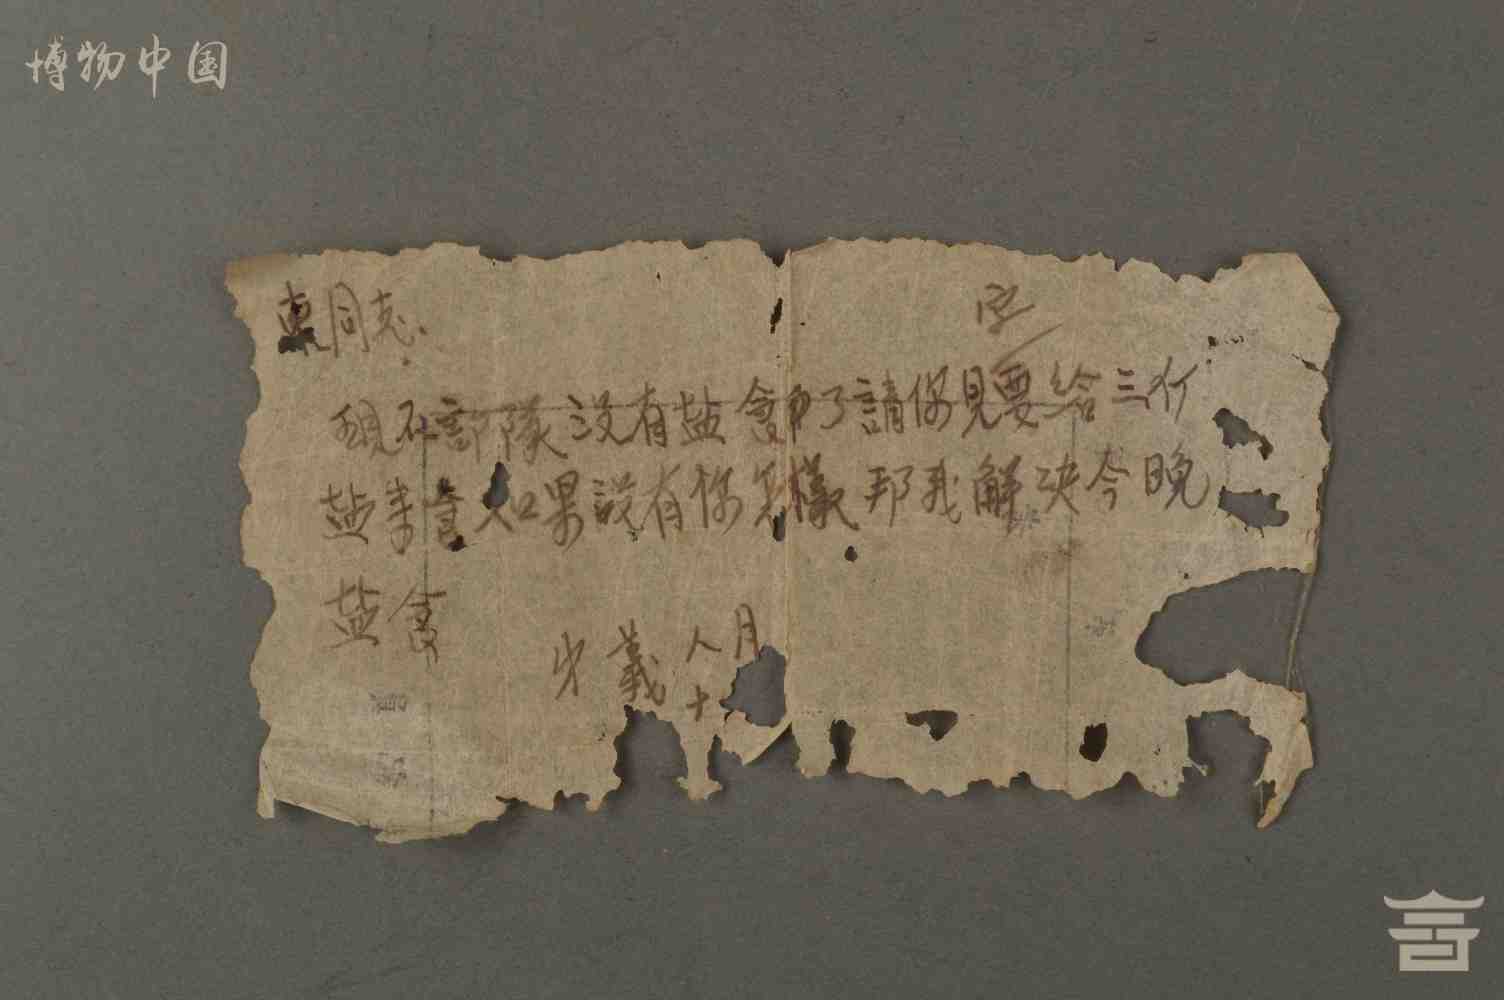 博物中国
東同志
定
現在部隊没有盐食用了請你見要給三斤
盐来食如果没有你怎樣邦我解决今晚
盐食
義 八月
十